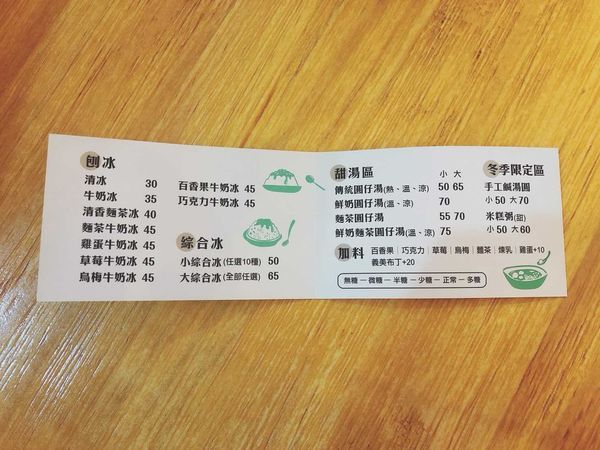 刨冰
清冰 30
牛奶冰 35
清香麵茶冰 40
麵茶牛奶冰 45
雞蛋牛奶冰 45
草莓牛奶冰 45
烏梅牛奶冰 45
百香果牛奶冰 45
巧克力牛奶冰 45
綜合冰
小綜合冰(任選10種) 50
大綜合冰(全部任選) 65
甜湯區 小 大
傳統圓仔湯(熱、溫、涼) 50 65
鮮奶圓仔湯(溫、涼) 70
麵茶圓仔湯 55 70
鮮奶麵茶圓仔湯(溫、涼) 75
冬季限定區
手工鹹湯圓
小50 大70
米糕粥(甜)
小50 大60
加料 百香果|巧克力|草莓|烏梅|麵茶|煉乳|雞蛋+10
義美布丁+20
無糖－微糖－半糖－少糖－正常－多糖